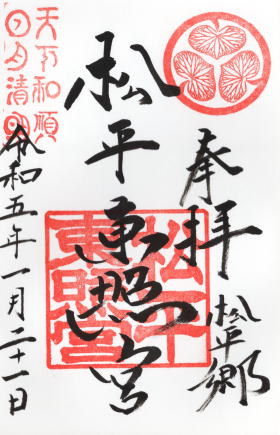 奉拝
松平郷
松平東照宮
松平東照宮
天下和順
日月清明
令和五年一月二十一日